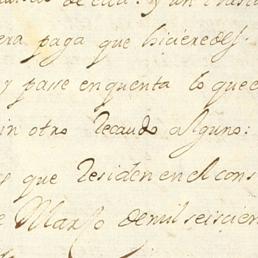 era paga que hiçieredes.
y passe en quenta lo que e
in otro Recaudo alguno:
que Residen en el cons
Março de mil seisçien